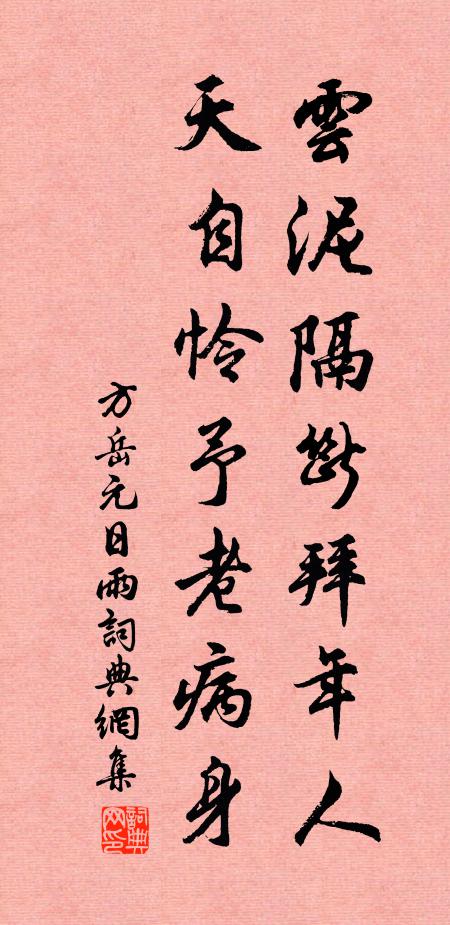 雲泥隔斷拜年人
天自憐予老病身
方岳元日雨詞典網集
詞典网印